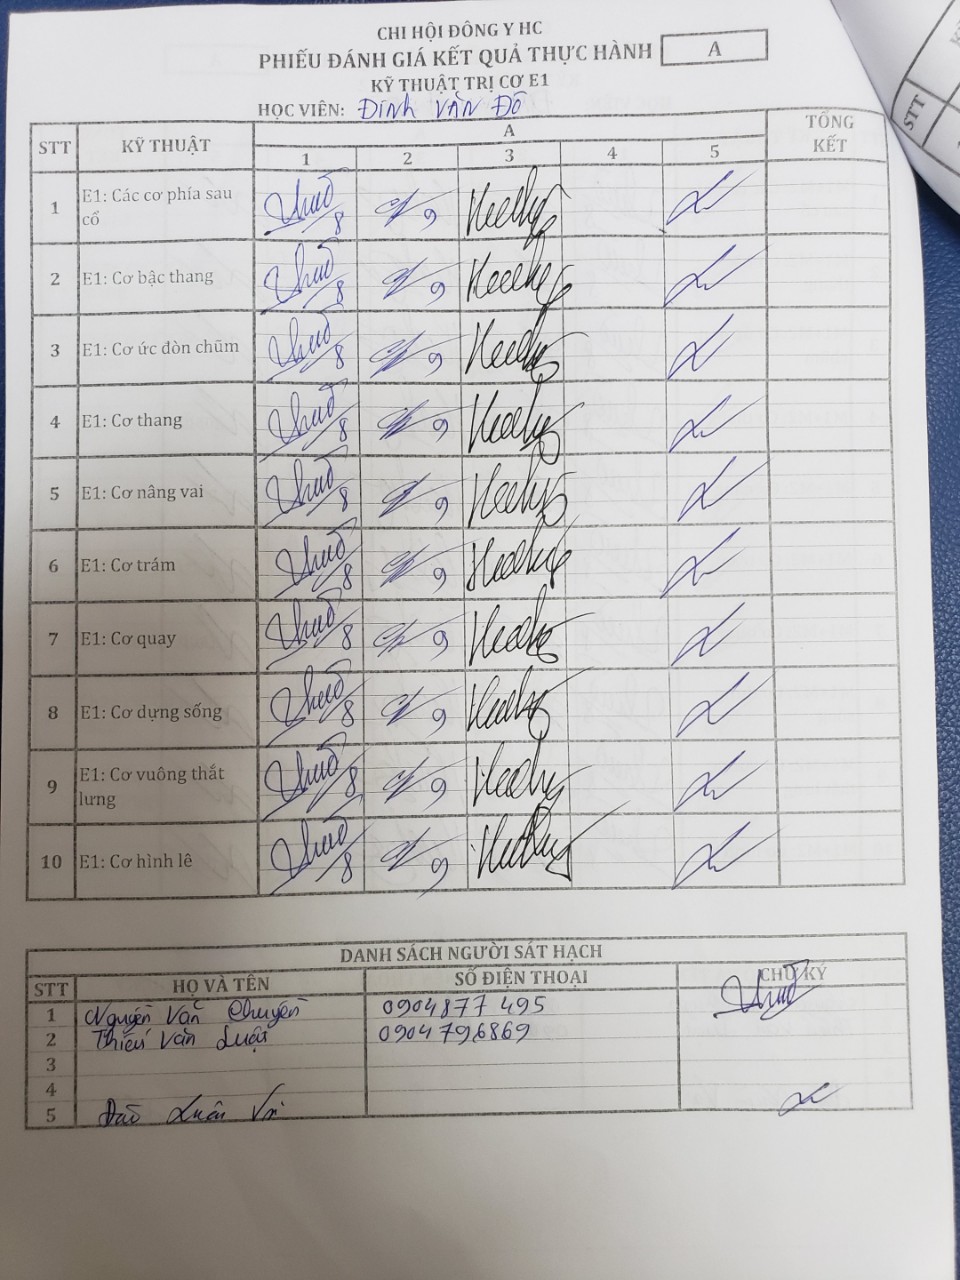 CHI HỘI ĐÔNG Y HC
PHIẾU ĐÁNH GIÁ KẾT QUẢ THỰC HÀNH A
KỸ THUẬT TRỊ CƠ E1
HỌC VIÊN: ĐINH VĂN ĐÔ
STT KỸ THUẬT A TỔNG KẾT
1 2 3 4 5
1 E1: Các cơ phía sau cổ 8 9
2 E1: Cơ bậc thang 8 9
3 E1: Cơ ức đòn chũm 8 9
4 E1: Cơ thang 8 9
5 E1: Cơ nâng vai 8 9
6 E1: Cơ trám 8 9
7 E1: Cơ quay 8 9
8 E1: Cơ dựng sống 8 9
9 E1: Cơ vuông thắt lưng 8 9
10 E1: Cơ hình lê 8 9
DANH SÁCH NGƯỜI SÁT HẠCH
STT HỌ VÀ TÊN SỐ ĐIỆN THOẠI CHỮ KÝ
1 Nguyễn Văn Chuyền 0904877 495
2 Thiều Văn Luật 0904796869
3
4
5 Đào Xuân
STT